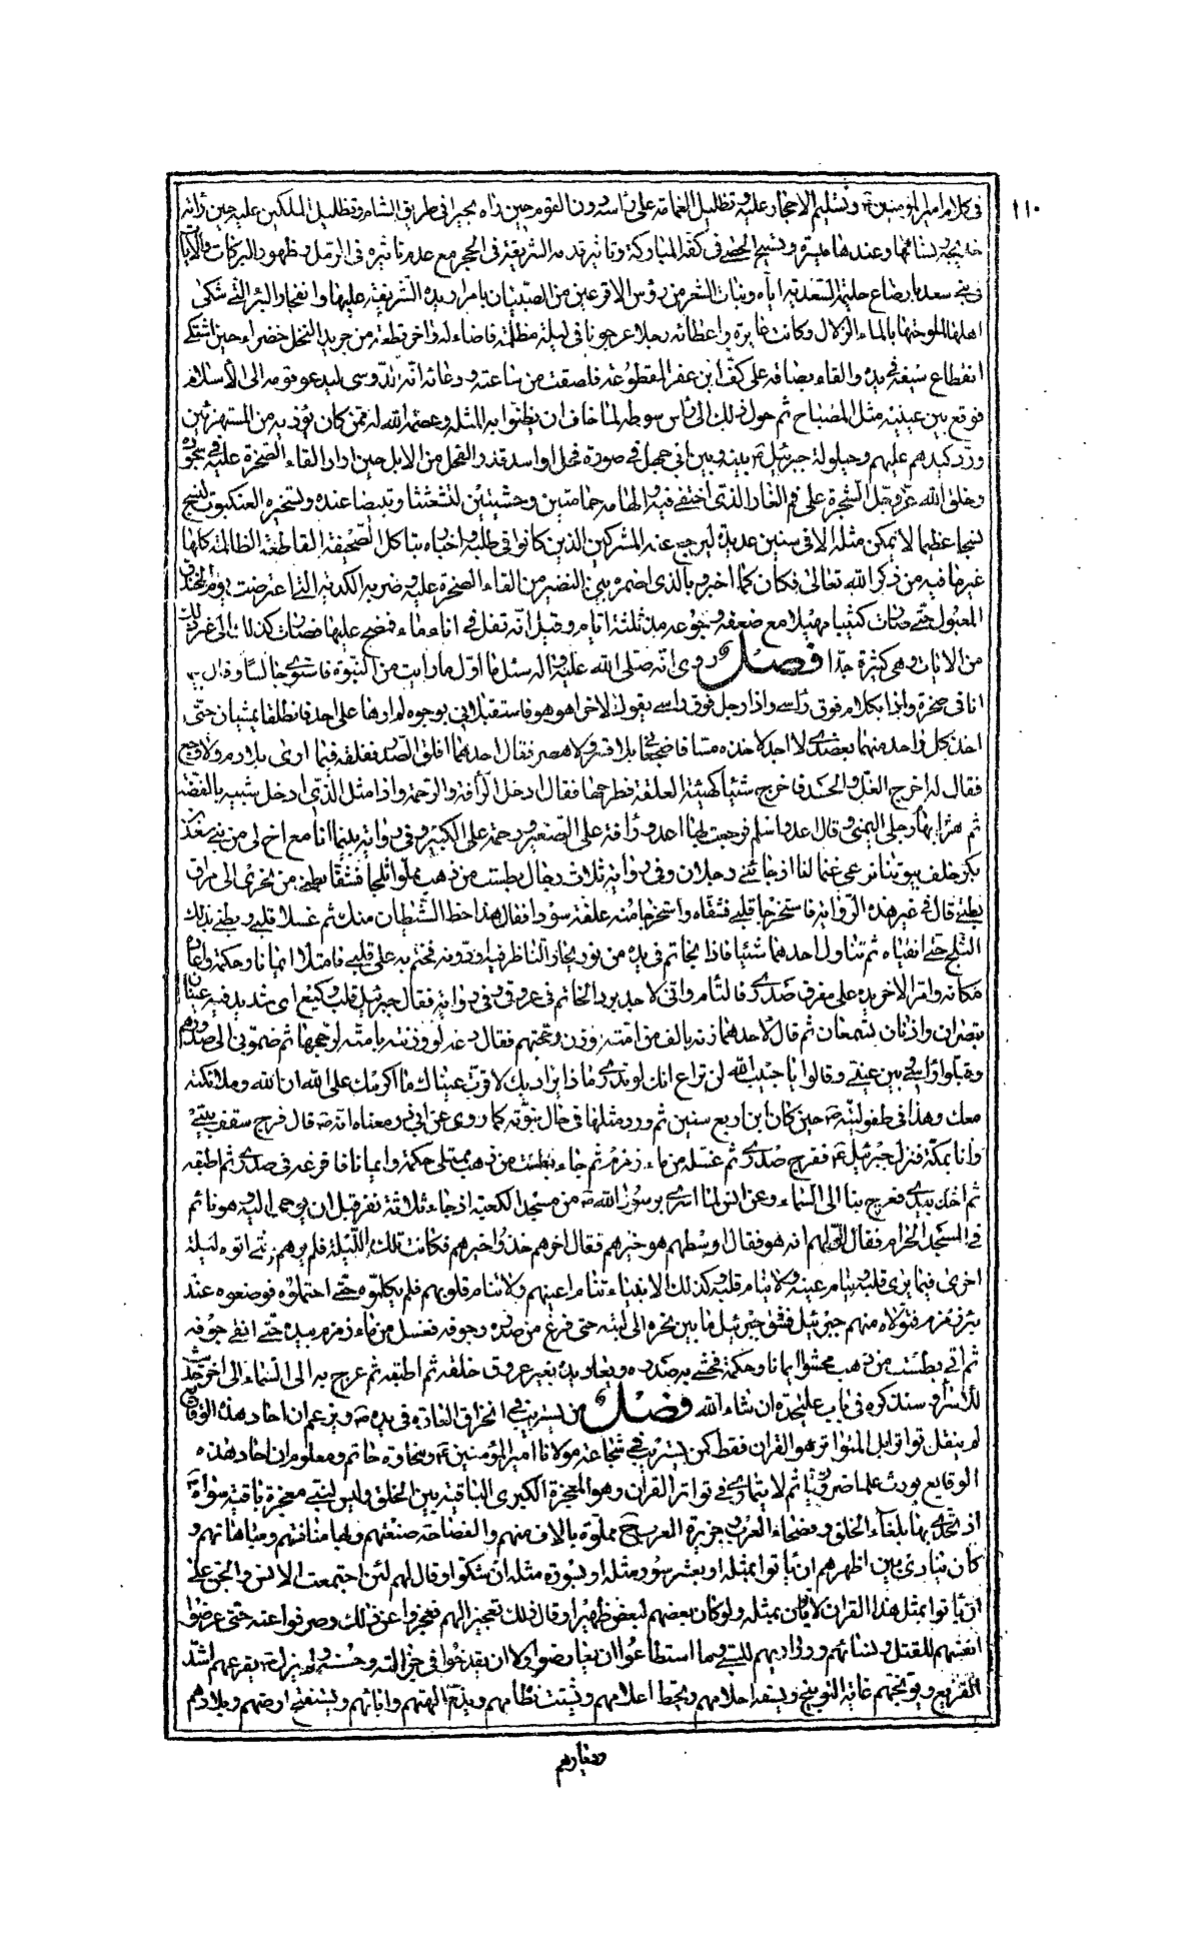 ١١٠
في كلام امير المؤمنين ع وتسليم الاحجار عليه وتظليل الغمامة على راسه دون القوم حين راه بحيرا في طريق الشام وتظليل الملكين عليه حين راته
خديجة ونسائها وعندها ميسرة وتسبيح الحصى في كفه المباركة وتاثير قدمه الشريفة في الحجر مع عدم تاثيره في الرمل وظهور البركات والآيات
في بني سعد بارضاع حليمة السعدية اياه ونبات الشعر من رؤس الاقرعين من الصبيان بامرار يده الشريفة عليها وانفجار البئر التي شكى
اهلها الملوحتها بالماء الزلال وكانت غايرة واعطائه رجلا عرجونا في ليلة مظلمة فاضاء له واخر قطعة من جريد النخل خضراء حين اشتكى
انقطاع سيفه في يده والقاء بصاقه على كف ابن عفر المقطوعة فلصقت من ساعته ودعائه انه الدوسي ليدعو قومه الى الاسلام
فوقع بين عينيه مثل المصباح ثم حول ذلك الى راس سوطه لما خاف ان يظنوا به المثلة وعصمة الله له ممن كان يؤذيه من المستهزئين
ورد كيدهم عليهم وحيلولة جبرئيل ع بينه وبين ابي جهل في صورة فحل او اسد قدر الفحل من الابل حين اراد القاء الصخرة عليه في سجوده
وخلق الله عز وجل الشجرة على فم الغار الذي اختفى فيه والهامه حمامتين وحشيتين لتعششا وتبيضا عنده وتسخيره العنكبوت لنسج
نسجا عظيما لا يمكن مثله الا في سنين عديدة ليرجع عنه المشركين الذين كانوا في طلبه واخباره بتاكل الصحيفة القاطعة الظالمة كلها
غير ما فيه من ذكر الله تعالى فكان كما اخبر وبالذي اضمره بني النضير من القاء الصخرة عليه وضربه الكدية التي اعترضت يوم الخندق
المعول حتى صارت كثيبا مهيلا مع ضعفه وجوعه مدة ثلثة ايام وقيل انه تفل في اناء ماء فنضح عليها فصارت كذلك الى غير ذلك
من الايات وهي كثيرة جدا فصل روى انه صلى الله عليه واله سئل ما اول ما رايت من النبوة فاستوى جالسا وقال
انا في صخرة واذا بكلام فوق راسي واذا رجل فوق راسي يقول لاخر اهو هو فاستقبلاني بوجوه لم ارها على احد فانطلقا يمشيان حتى
اخذ كل واحد منهما بعضدي لا اجد لاخذه مسا فاضجعاني بلا قسر ولا هصر فقال احدهما افلق الصدر ففلقه فيما ارى بلا دم ولا وجع
فقال له اخرج الغل والحسد فاخرج شيئا كهيئة العلقة فطرحها فقال ادخل الرأفة والرحمة واذا مثل الذي ادخل شبيه بالفضة
ثم هز ابهام رجلي اليمنى وقال عد واسلم فرجعت بها اعدو رأفة على الصغير ورحمة على الكبير وفي رواية بينما انا مع اخ لي من بني سعد
بكر خلف بيوتنا نرعى غنما لنا اذ جائني رجلان وفي رواية ثلاث رجال بطست من ذهب مملوا ثلجا فشقا بطني من نحري الى مراق
بطني قال في غير هذه الرواية فاستخرجا قلبي فشقاه واستخرجا منه علقة سودا فقال هذا حظ الشيطان منك ثم غسلا قلبي وبطني بذلك
الثلج حتى انقياه ثم تناول احدهما شيئا فاذا بخاتم في يده من نور يحار الناظر فيه ودونه فختم به على قلبي فامتلأ ايمانا وحكمة واعاد
مكانه وامر الاخر يده على مفرق صدري فالتام واني لاجد برد الخاتم في عروقي وفي رواية فقال جبرئيل قلب وكيع اي شديد فيه عينان
تبصران واذنان تسمعان ثم قال لاحدهما زنه بالف من امته وزن وعجنهم فقال دعه لو وزنته بامته لرجحها ثم ضموني الى صدورهم
وقبلوا راسي وبين عيني وقالوا يا حبيب الله لن تراع انك لو تدري ما ذا يراد بك لاقرت عيناك ما اكرمك على الله ان الله وملائكته
معك وهذا في طفوليته ص حين كان ابن اربع سنين ثم ورد مثلها في حال نبوته كما روى عن ابي ذر ومعناه انه ص قال فرج سقف بيتي
وانا بمكة فنزل جبرئيل ع ففرج صدري ثم غسله من ماء زمزم ثم جاء بطست من ذهب ممتلى حكمة وايمانا فافرغه في صدري ثم اطبقه
ثم اخذ بيدي فعرج بنا الى السماء وعن انس لما اسرى برسول الله ص من مسجد الكعبة اذ جاء ثلاثة نفر قبل ان يوحى اليه وهو نائم
في المسجد الحرام فقال اولهم انه هو فقال اوسطهم هو خيرهم فقال اخرهم خذوا خيرهم فكانت تلك الليلة فلم يرهم حتى اتوه ليلة
اخرى فيما يرى قلبه وينام عينه ولا ينام قلبه وكذلك الانبياء تنام اعينهم ولا تنام قلوبهم فلم يكلموه حتى احتملوه فوضعوه عند
بئر زمزم فتولاه منهم جبرئيل فشق جبرئيل ما بين نحره الى لبته حتى فرغ من صدره وجوفه فغسل من ماء زمزم بيده حتى انقى جوفه
ثم اتى بطست من ذهب محشوا ايمانا وحكمة فحشى به صدره ولغاديده يعني عروق حلقه ثم اطبقه ثم عرج به الى السماء الى اخر حديث
الاسراء وسنذكره في باب عليحدة ان شاء الله فصل من يستريب في انخراق العادة في يده ص ويزعم ان احاد هذه الوقايع
لم ينقل تواترا بل المتواتر هو القران فقط كمن يستريب في شجاعة مولانا امير المؤمنين ع وسخاوة حاتم ومعلوم ان احاد هذه
الوقايع يورث علما ضروريا ثم لا يتمارى في تواتر القران وهو المعجزة الكبرى الباقية بين الخلق وليس لنبي معجزة باقية سواه
اذ تحدى بها بلغاء الخلق وفصحاء العرب وجزيرة العرب ح مملوة بالاف منهم والفصاحة صنعتهم وبها منافستهم ومباهاتهم و
كان ينادي بين اظهرهم ان ياتوا بمثله او بعشر سور مثله او بسورة مثله ان شكوا وقال لهم لئن اجتمعت الانس والجن على
ان ياتوا بمثل هذا القران لا ياتون بمثله ولو كان بعضهم لبعض ظهيرا وقال ذلك تعجيزا لهم فعجزوا عن ذلك وصرفوا عنه حتى عرضوا
انفسهم للقتل ونسائهم وذراريهم للسبي وما استطاعوا ان يعارضوا ولا ان يقدحوا في جزالته وحسنه ولم يزل ص يقرعهم اشد
التقريع ويوبخهم غاية التوبيخ ويسفه احلامهم ويحط اعلامهم ويشتت نظامهم ويذم الهتهم واباتهم ويستفتح ارضهم وبلادهم
وديارهم